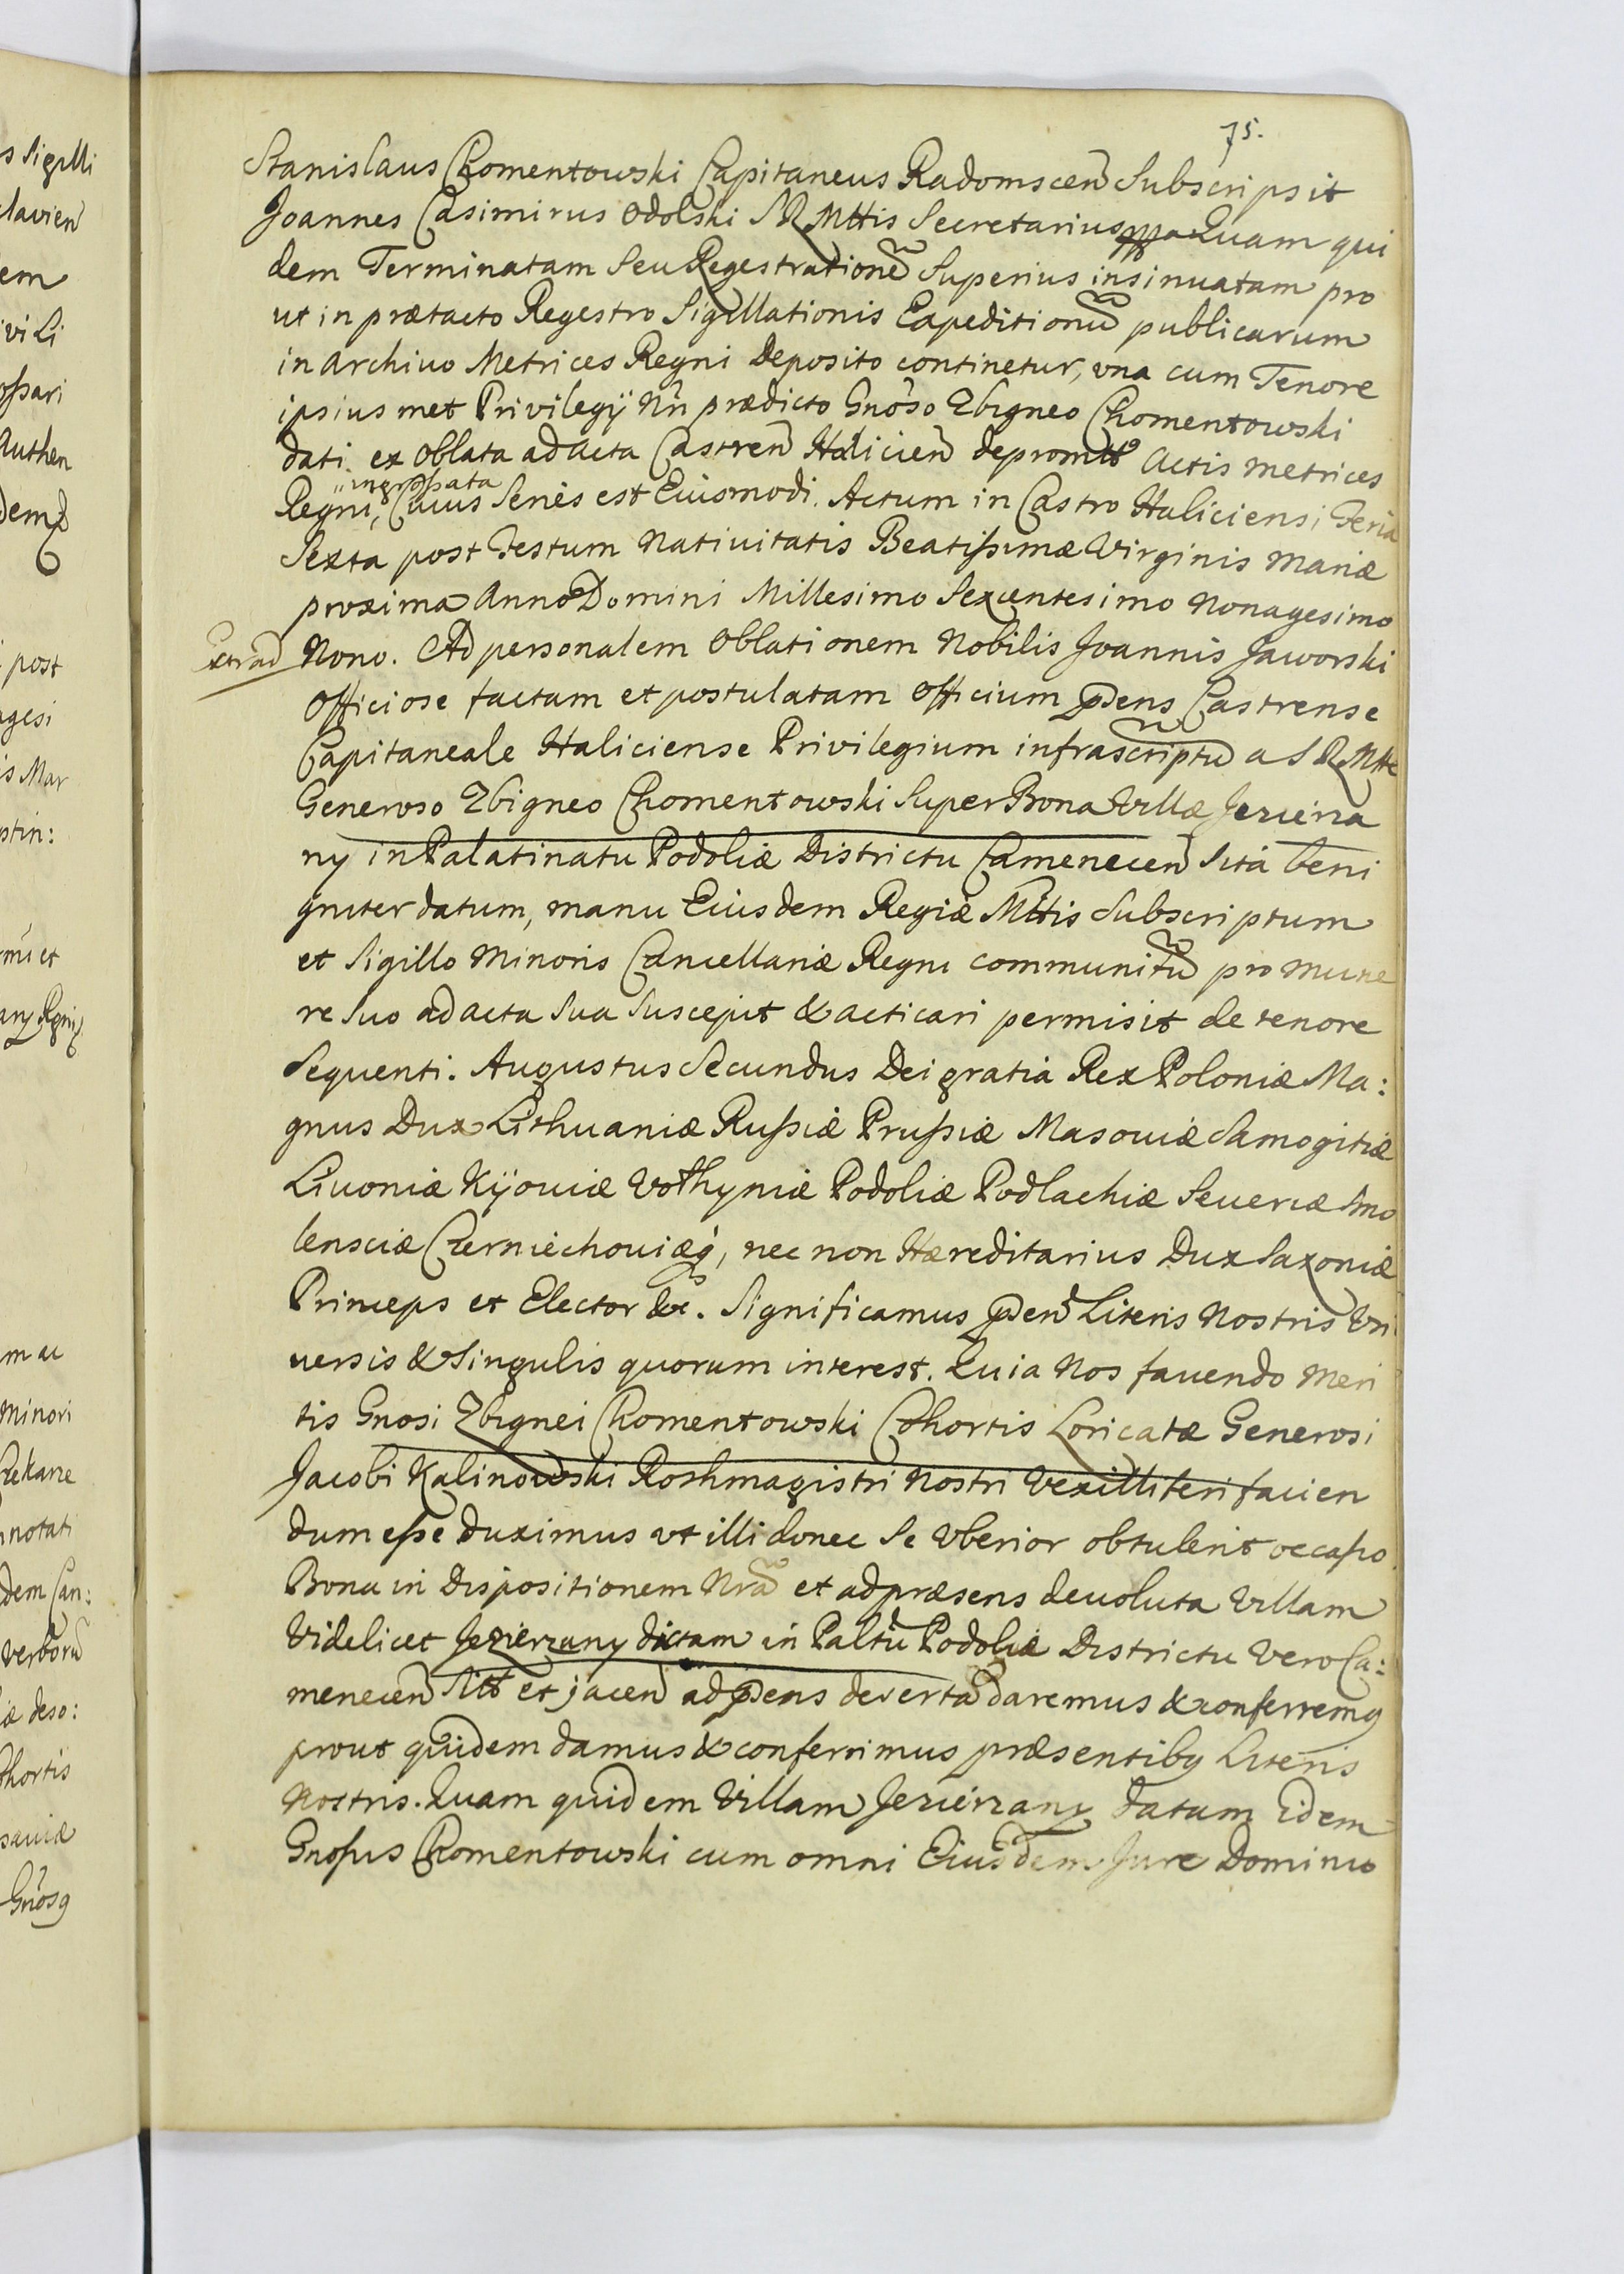 75.
Stanislaus Chomentowski Capitaneus Radomscen̄ Subscripsit
Joannes Casimirus Odolski S R Mttis Secretarius Quam qui
dem Terminatam Seu Regestrationē Superius insinuatam pro
ut in prætacto Regestro Sigillationis Expeditionū publicarum
in Archivo Metrices Regni Deposito continetur, vna cum Tenore
ipsiusmet Privilegÿ Nn̄ prædicto Gnōso Zbigneo Chomentowski
dati ex Oblata ad acta Castren̄ Halicien̄ depromtō Actis Metrices
ingrossata
Regni, Cuius Seriēs est Eiusmodi. Actum in Castro Haliciensi Feria
Sexta post Festum Nativitatis Beatissimæ Virginis Mariæ
proxima Anno Domini Millesimo Sexcentesimo Nonagesimo
Extrad
Nono. Ad personalem Oblationem Nobilis Joannis Jaworski
Officiose factam et postulatam Officium p̄dens Castrense
Capitaneale Haliciense Privilegium infrascriptū a S R Mtte
Generoso Zbigneo Chomentowski Super Bona Villæ Jezierza
ny in Palatinatu Podoliæ Districtu Camenecen̄ Sita beni
gniter datum, manu Eiusdem Regiæ Mttis Subscriptum
et Sigillo Minoris Cancellariæ Regni communitū pro mune
re Suo ad acta Sua Suscepit & acticari permisit de tenore
Sequenti. Augustus Secundus Dei gratiâ Rex Poloniæ Ma:
gnus Dux Lithuaniæ Russiæ Prussiæ Masouiæ Samogitiæ
Liuoniæ Kijouiæ Volhyniæ Podoliæ Podlachiæ Seueriæ Smo
lensciæ Czerniechouiæq, nec non Hæreditarius Dux Saxoniæ
Princeps et Elector &c. Significamus p̄den̄ Literis Nostris Vni
uersis & Singulis quorum interest. Quia Nos fauendo Meri
tis Gnosi Zbignei Chomentowski Cohortis Loricatæ Generosi
Jacobi Kalinowski Rothmagistri Nostri Vexilliferi facien
dum esse duximus vt illi donec Se Vberior obtulerit occasio
Bona in Dispositionem Nrā et ad præsens deuoluta Villam
Videlicet Jezierzany dictam in Paltū Podoliæ Districtu Vero Ca:
menecen̄ Sitt̄ et jacen̄ ad p̄dens desertā daremus & conferremq
prout quidem damus & conferrimus præsentibq Literis
Nostris. Quam quidem Villam Jezierzany datam idem
Gnosus Chomentowski cum omni Eiusdem Jure Dominio